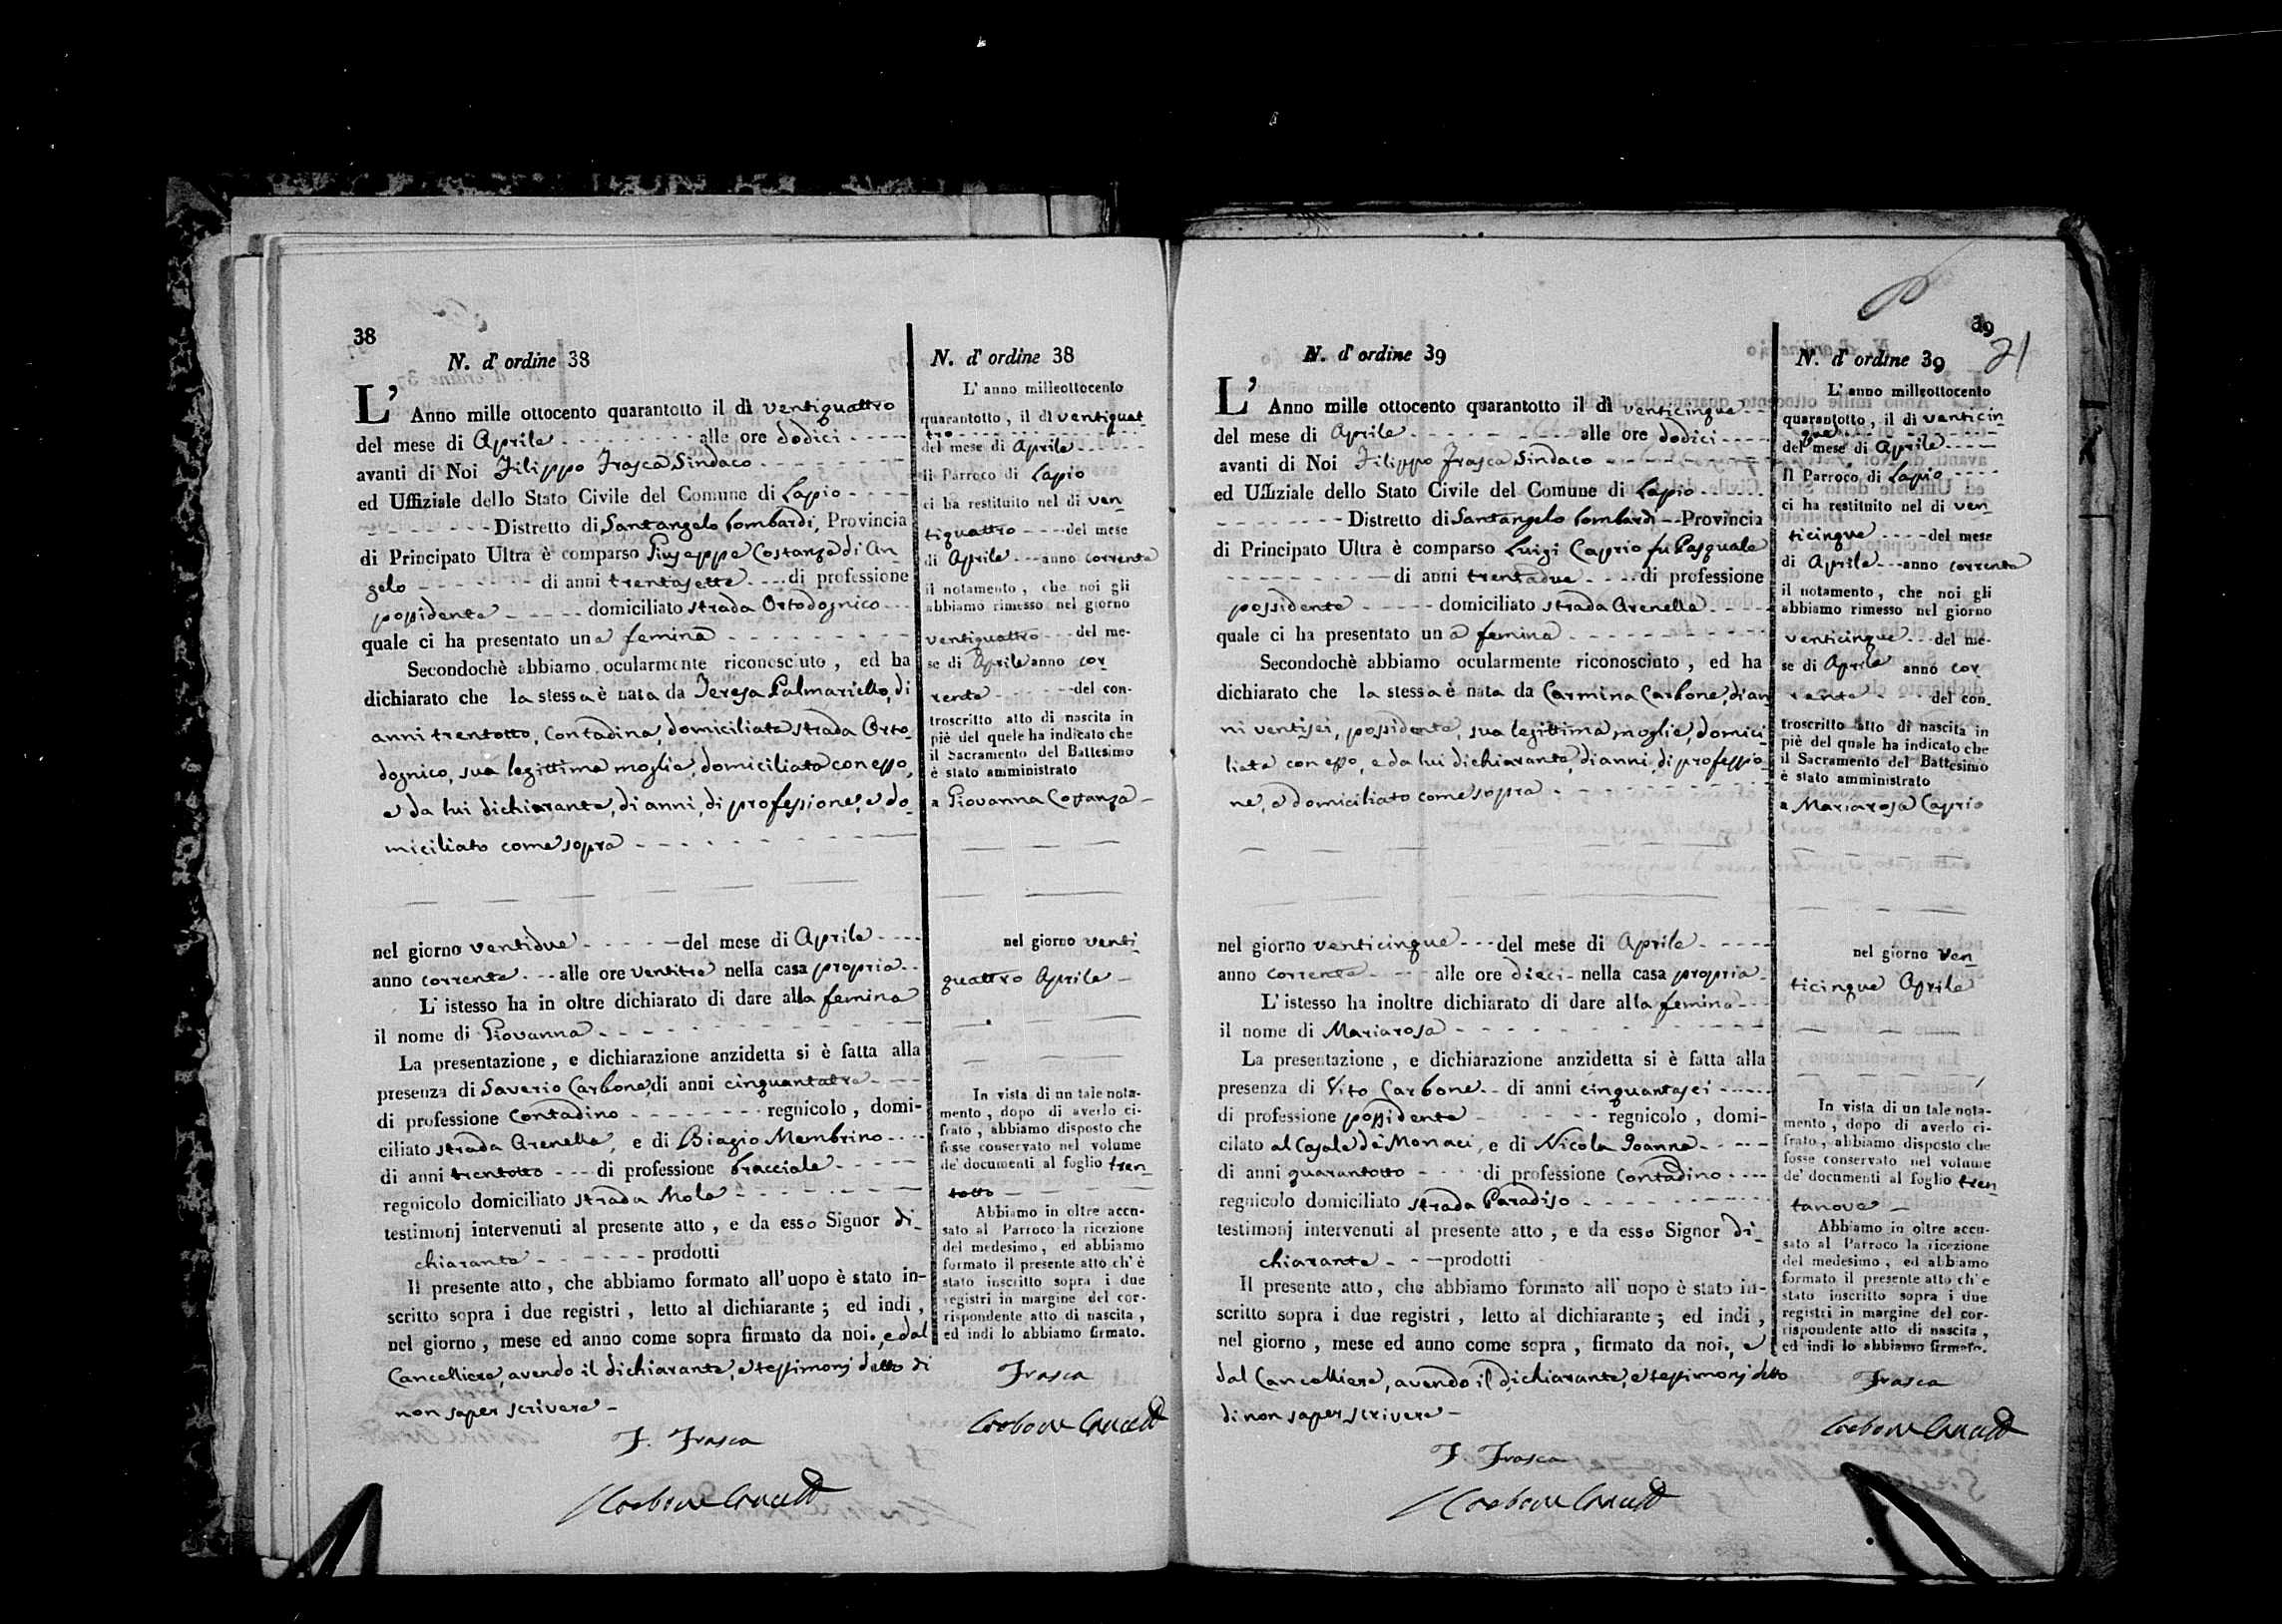 38
N. d' ordine 38
L' Anno mille ottocento quarantotto il dì ventiquattro
del mese di Aprile alle ore dodici
avanti di Noi Filippo Frasca Sindaco
ed Uffiziale dello Stato Civile del Comune di Lapio
Distretto di Santangelo Lombardi, Provincia
di Principato Ultra è comparso Giuseppe Costanza di An-
gelo di anni trentasette di professione
possidente domiciliato strada Ortodognico
quale ci ha presentato una femina
Secondochè abbiamo ocularmente riconosciuto, ed ha
dichiarato che la stessa è nata da Teresa Palmariello, di
anni trentotto, Contadina, domiciliata strada Orto-
dognico, sua legittima moglie, domiciliata con esso,
e da lui dichiarante, di anni, di professione, e do-
miciliato come sopra
nel giorno ventidue del mese di Aprile
anno corrente alle ore ventitre nella casa propria
L' istesso ha in oltre dichiarato di dare alla femina
il nome di Giovanna
La presentazione, e dichiarazione anzidetta si è fatta alla
presenza di Saverio Carbone, di anni cinquantatre
di professione Contadino regnicolo, domi-
ciliato strada Arenella, e di Biagio Membrino
di anni trentotto di professione bracciale
regnicolo domiciliato strada Mola
testimonj intervenuti al presente atto, e da esso Signor di-
chiarante prodotti
Il presente atto, che abbiamo formato all'uopo è stato in-
scritto sopra i due registri, letto al dichiarante; ed indi,
nel giorno, mese ed anno come sopra firmato da noi., e dal
Cancelliere, avendo il dichiarante, e testimonj detto di
non saper scrivere
F. Frasca
Carbone Cancell
N. d' ordine 38
L' anno milleottocento
quarantotto, il dì ventiquat-
tro
del mese di Aprile
Il Parroco di Lapio
ci ha restituito nel di ven-
tiquattro del mese
di Aprile anno corrente
il notamento, che noi gli
abbiamo rimesso nel giorno
ventiquattro del me-
se di Aprile anno cor-
rente del con-
troscritto atto di nascita in
piè del quele ha indicato che
il Sacramento del Battesimo
è stato amministrato
a Giovanna Costanza
nel giorno venti-
quattro Aprile
In vista di un tale nota-
mento, dopo di averlo ci-
frato, abbiamo disposto che
fosse conservato nel volume
de' documenti al foglio tren-
totto
Abbiamo in oltre accu-
sato al Parroco la ricezione
del medesimo, ed abbiamo
formato il presente atto ch' è
stato inscritto sopra i due
registri in margine del cor-
rispondente atto di nascita,
ed indi lo abbiamo firmato.
Frasca
Carbone Cancell
39
21
N. d' ordine 39
L' Anno mille ottocento quarantotto il dì venticinque
del mese di Aprile alle ore dodici
avanti di Noi Filippo Frasca Sindaco
ed Uffiziale dello Stato Civile del Comune di Lapio
Distretto di Santangelo Lombardi Provincia
di Principato Ultra è comparso Luigi Caprio fu Pasquale
di anni trentadue di professione
possidente domiciliato strada Arenella
quale ci ha presentato una femina
Secondochè abbiamo ocularmente riconosciuto, ed ha
dichiarato che la stessa è nata da Carmina Carbone, di an-
ni ventisei, possidente, sua legittima moglie, domici-
liata con esso, e da lui dichiarante, di anni, di professio-
ne, e domiciliato come sopra
nel giorno venticinque del mese di Aprile
anno corrente alle ore dieci nella casa propria
L' istesso ha inoltre dichiarato di dare alla femina
il nome di Mariarosa
La presentazione, e dichiarazione anzidetta si è fatta alla
presenza di Vito Carbone di anni cinquantasei
di professione possidente regnicolo, domi-
cilato al Casale de' Monaci, e di Nicola Ioanna
di anni quarantotto di professione Contadino
regnicolo domiciliato strada Paradiso
testimonj intervenuti al presente atto, e da esso Signor di-
chiarante prodotti
Il presente atto, che abbiamo formato all' uopo è stato in-
scritto sopra i due registri, letto al dichiarante; ed indi,
nel giorno, mese ed anno come sopra, firmato da noi., e
dal Cancelliere, avendo il dichiarante, e testimonj detto
di non saper scrivere
F. Frasca
Carbone Cancell
N. d' ordine 39
L' anno milleottocento
quarantotto, il di venticin-
que
del mese di Aprile
Il Parroco di Lapio
ci ha restituito nel di ven-
ticinque del mese
di Aprile anno corrente
il notamento, che noi gli
abbiamo rimesso nel giorno
venticinque del me-
se di Aprile anno cor-
rente del con-
troscritto atto di nascita in
piè del quale ha indicato che
il Sacramento del Battesimo
è stato amministrato
a Mariarosa Caprio
nel giorno ven-
ticinque Aprile
In vista di un tale nota-
mento, dopo di averlo ci-
frato, abbiamo disposto che
fosse conservato nel volume
de' documenti al foglio tren-
tanove
Abbiamo in oltre accu-
sato al Parroco la ricezione
del medesimo, ed abbiamo
formato il presente atto ch' è
stato inscritto sopra i due
registri in margine del cor-
rispondente atto di nascita,
ed indi lo abbiamo firmato.
Frasca
Carbone Cancell